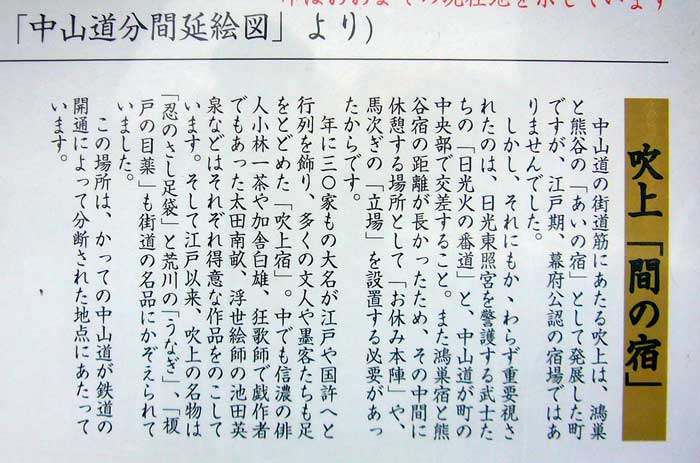 「中山道分間延絵図」より)
吹上「間の宿」
中山道の街道筋にあたる吹上は、鴻巣
と熊谷の「あいの宿」として発展した町
ですが、江戸期、幕府公認の宿場ではあ
りませんでした。
しかし、それにもか、わらず重要視さ
れたのは、日光東照宮を警護する武士た
ちの「日光火の番道」と、中山道が町の
中央部で交差すること。また鴻巣宿と熊
谷宿の距離が長かったため、その中間に
休憩する場所として「お休み本陣」や、
馬次ぎの「立場」を設置する必要があっ
たからです。
年に三〇家もの大名が江戸や国許へと
行列を飾り、多くの文人や墨客たちも足
をとどめた「吹上宿」。中でも信濃の俳
人小林一茶や加舎白雄、狂歌師で戯作者
でもあった太田南畝、浮世絵師の池田英
泉などはそれぞれ得意な作品をのこして
います。そして江戸以来、吹上の名物は
「忍のさし足袋」と荒川の「うなぎ」、「榎
戸の目薬」も街道の名品にかぞえられて
いました。
この場所は、かっての中山道が鉄道の
開通によって分断された地点にあたって
います。